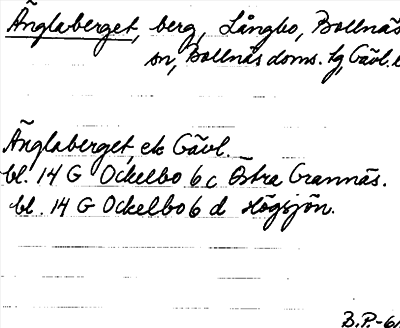 Änglaberget, berg, Långbo, Bollnäs
sn, Bollnäs doms. tg, Gävl. l
Änglaberget, ek Gävl.
bl. 14 G Ockelbo 6 c Östra Grannäs.
bl. 14 G Ockelbo 6 d Högsjön.
B.P-61